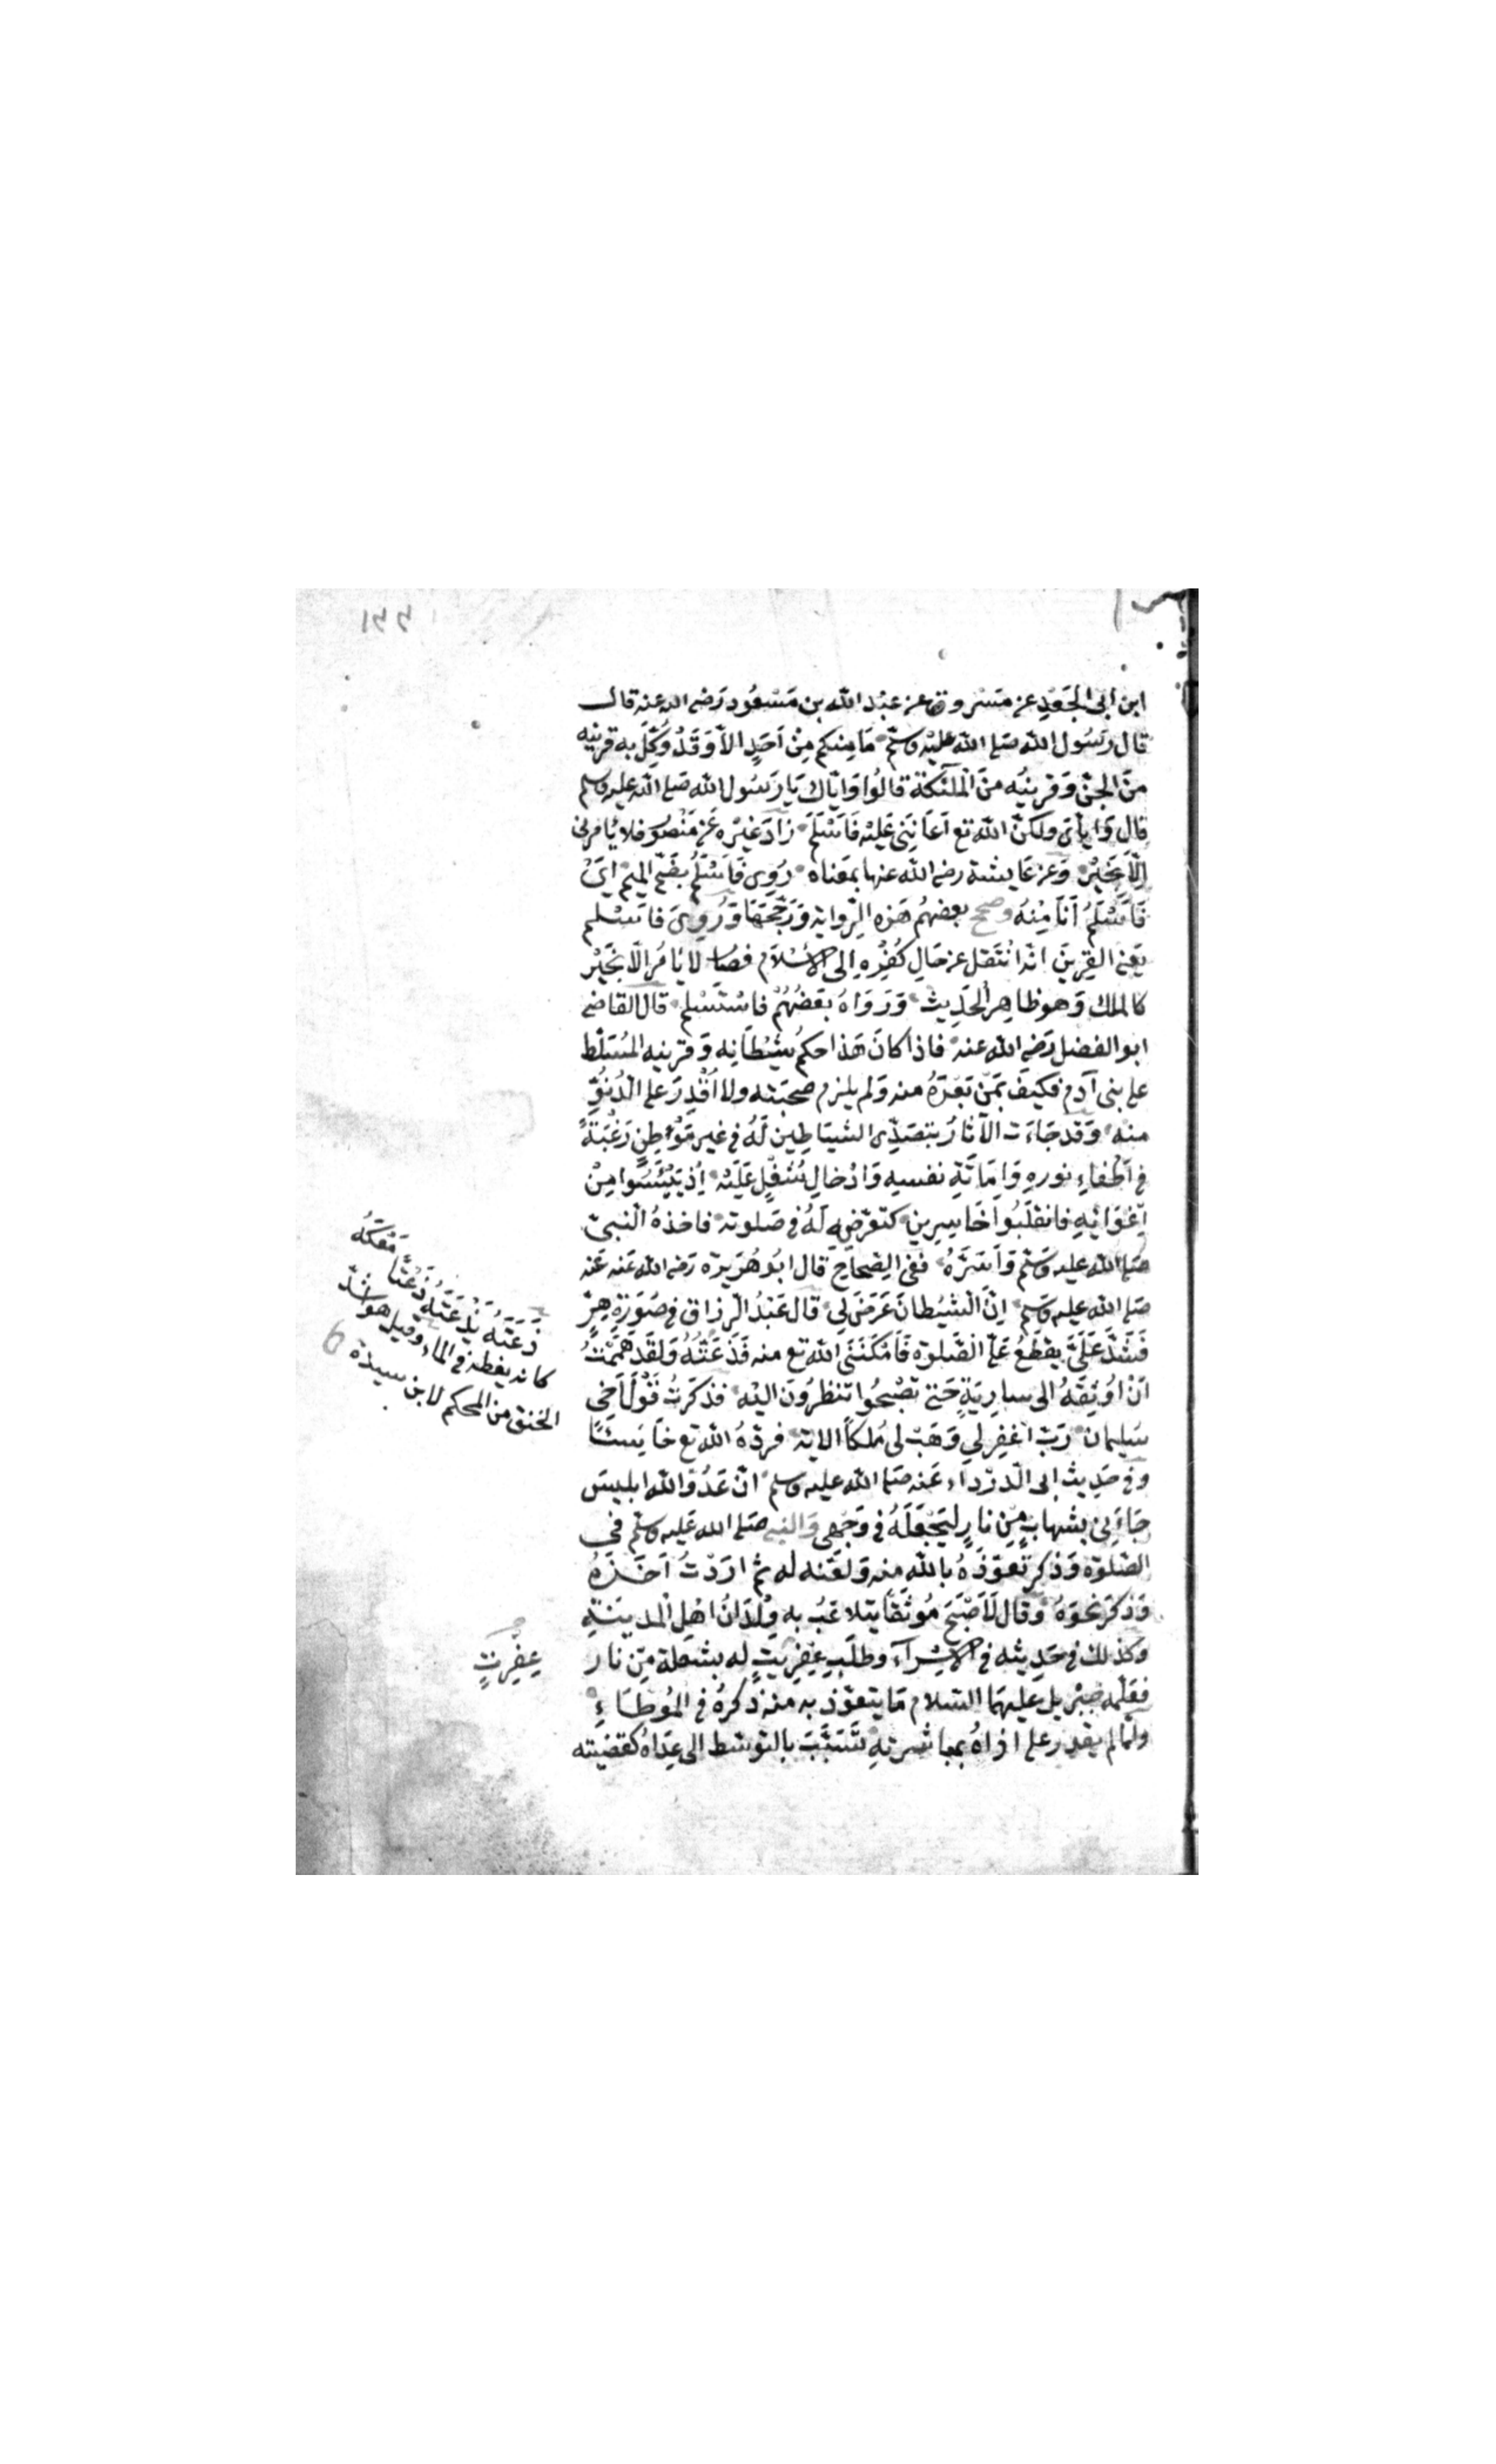 ابن ابى الجَعْدِ عن مَسْروق عن عبْد الله بن مَسْعُود رَضى الله عنه قال
قال رَسُول الله صَلى الله عليْه وسلّم مَا مِنكم مِنْ اَحَدٍ الاّ وَقَدْ وُكِّلَ به قرينه
منَ الجنّ وَقرينُه منَ الْملٰئكة قالُوا وَايّاك يَا رَسُول الله صَلى الله عليه وسلم
قال وَايايَ ولكنّ الله تع اَعَانَنى عَليْه فَاَسْلَمَ زادَ غيْره عَن مَنْصُور فلا يَامرنى
اِلّا بخيْر وَعن عَايشة رضى الله عنها بمعَناه رُوِى فَاَسْلَمُ بضَم الميم اىْ
فَاَسْلَمُ اَنَا مِنْهُ وصحح بعضهُم هَذه الرّواية وَرَجّحَهَا وَرُوِىَ فاَسْلم
يَعنى القِرينَ انّه انْتَقل عن حَالِ كُفْرِه اِلى الاِسْلَام فصَار لا يَامُر الّا بخَيْر
كالملك وَهو ظاهِر الحَدِيث وَرَوَاهُ بَعضُهُمْ فاسْتَسْلم قال القاضى
ابو الفضل رَضى الله عنه فاذا كانَ هَذا حكمُ شيْطَانه وَقرينه المُسَلّط
على بنى آدم فكيفَ بمَنْ بَعُدَ منه وَلم يلزم صحبَته ولا اُقْدِرَ على الدُنُوّ
منه وَقَد جَاءَت الآثارُ بتصَدّى الشيَاطِين لَهُ فى غير مَوْطِنٍ رَغْبَةً
فى اِطْفاءِ نوره وَاِمَاتَةِ نفسه وَادْخالِ شُغْلٍ عَلَيْه اِذ يَئِسُوا مِنْ
اِغْوَائِهِ فانقلَبُوا خَاسِرين كتعَرّضِه لَهُ فى صَلوته فاخذهُ النبىّ
صَلى الله عليه وَسلّم وَاَسَرَهُ ففى الصِحَاحِ قال ابُو هُرَيرة رَضى الله عَنه عَنه
صَلى الله عليه وسلم اِنّ الشيْطانَ عَرَضَ لِى قال عَبْدُ الرّزاق فى صُورَة هِرٍّ
فَشَدّ عَلَىَّ يقطَعُ عَلىّ الصَّلوة فَاَمْكَنَنى الله تع منه فَذَعَتُّهُ وَلقَد هَمَمْتُ
اَنْ اُوثِقَهُ الى سارِيَةٍ حَتى تصْبحُوا تنظرُونَ اليْه فذكَرتُ قَوْلَ اَخى
سَليمان رَبّ اغْفِر لى وَهَبْ لى مُلكاً الاية فردّهُ الله تع خَاسِئًا
وفى حَدِيث ابى الدّرْداءِ عَنه صَلى الله عليه وسلم انّ عَدُوّ الله ابليسَ
جَاءَنِى بشهابٍ مِن نارٍ ليَجْعَلَهُ فى وَجْهى وَالنبى صَلى الله عَليه وسلّم فى
الصّلوة وَذكر تعَوّذَهُ بالله منه وَلعَنه له ثم ارَدْتُ آخُذَهُ
وَذكرَ نحوَهُ وَقال لَاَصْبَحَ مُوثَقًا يتلاعَبُ به وِلْدَانُ اهْلِ المدينَةِ
وَكذلك فى حَدِيثه فى الاِسْرآءِ وطلَبِ عِفريتٍ له بشعلة مِّن نار
فعَلّمه جبْريل عَليهمَا السَّلام مَا يتعَوّذ به منه ذكَرهُ فى المُوطَاءِ
ولمّا لم يقدر على اذاهُ بمباشرتهِ تَسَبّبَ بالتوسّط الى عِدَاهُ كقضيّته
ذَعَتَهُ يَذْعَتُهُ ذَعْتًا مَعَكَهُ
كانه يغطه فى الماء وقيل هو اشدّ
الخنق من المحكم لابن سيدة
عِفْرِيتٍ